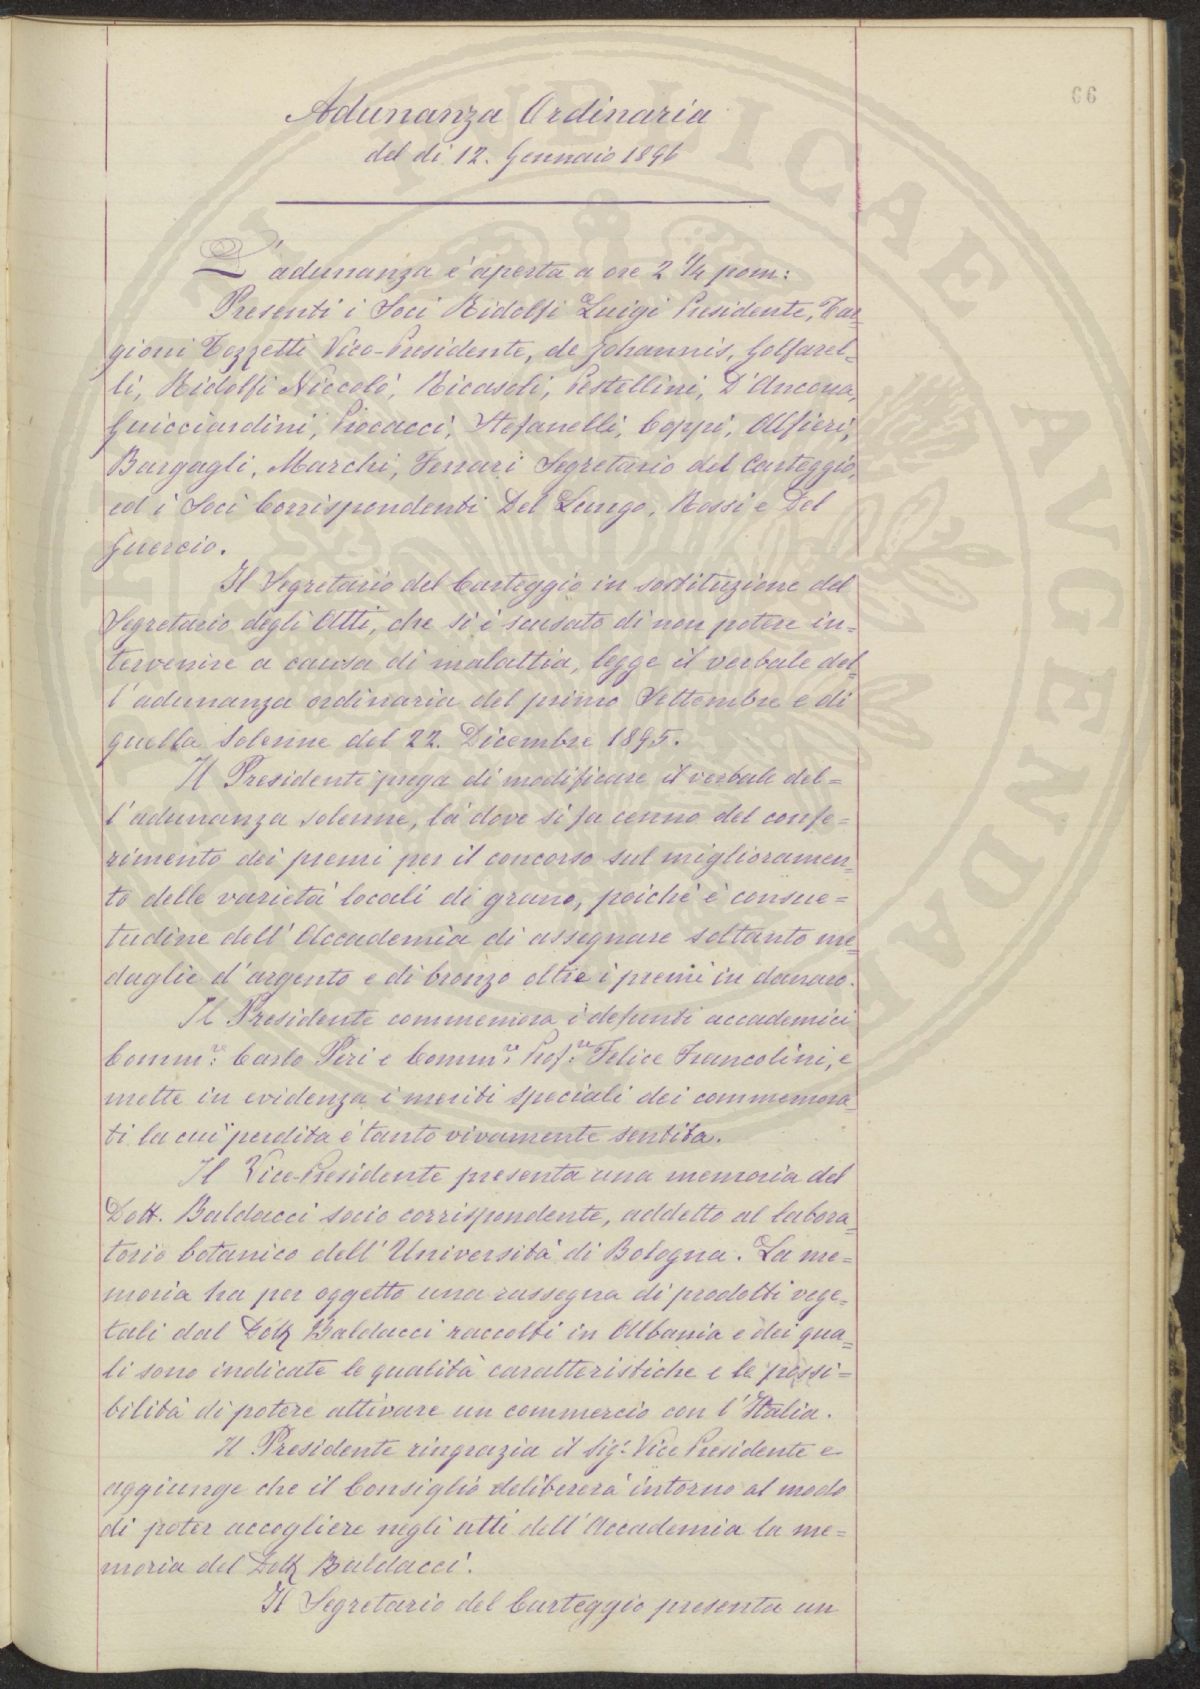 66
Adunanza Ordinaria
del dì 12. Gennaio 1896
L'adunanza è aperta a ore 2 1/4 pom:
Presenti i Soci Ridolfi Luigi Presidente, Tar=
gioni Tozzetti Vice-Presidente, de Johannis, Golfarel=
li, Ridolfi Niccolò, Ricasoli, Pestellini, D'Ancona,
Guicciardini, Piocacci, Stefanelli, Coppi, Alfieri,
Bargagli, Marchi, Ferrari Segretario del Carteggio,
ed i Soci Corrispondenti Del Lungo, Rossi e Del
Guercio.
Il Segretario del Carteggio in sostituzione del
Segretario degli Atti, che si è scusato di non potere in=
tervenire a causa di malattia, legge il verbale del=
l'adunanza ordinaria del primo Settembre e di
quella Solenne del 22. Dicembre 1895.
Il Presidente prega di modificare il verbale del=
l'adunanza solenne, là dove si fa cenno del confe=
rimento dei premi per il concorso sul miglioramen=
to delle varietà locali di grano, poichè è consue=
tudine dell'Accademia di assegnare soltanto me=
daglie d'argento e di bronzo oltre i premi in danaro.
Il Presidente commemora i defunti accademici
Comm.re Carlo Peri e Comm.re Prof.re Felice Francolini, e
mette in evidenza i meriti speciali dei commemora=
ti la cui perdita è tanto vivamente sentita.
Il Vice-Presidente presenta una memoria del
Dott. Baldacci socio corrispondente, addetto al labora=
torio botanico dell'Università di Bologna. La me=
moria ha per oggetto una rassegna di prodotti vege=
tali dal Dott. Baldacci raccolti in Albania e dei qua=
li sono indicate le qualità caratteristiche e le possi=
bilità di potere attivare un commercio con l'Italia.
Il Presidente ringrazia il Sig.r Vice Presidente e
aggiunge che il Consiglio delibererà intorno al modo
di poter accogliere negli atti dell'Accademia la me=
moria del Dott. Baldacci.
Il Segretario del Carteggio presenta un